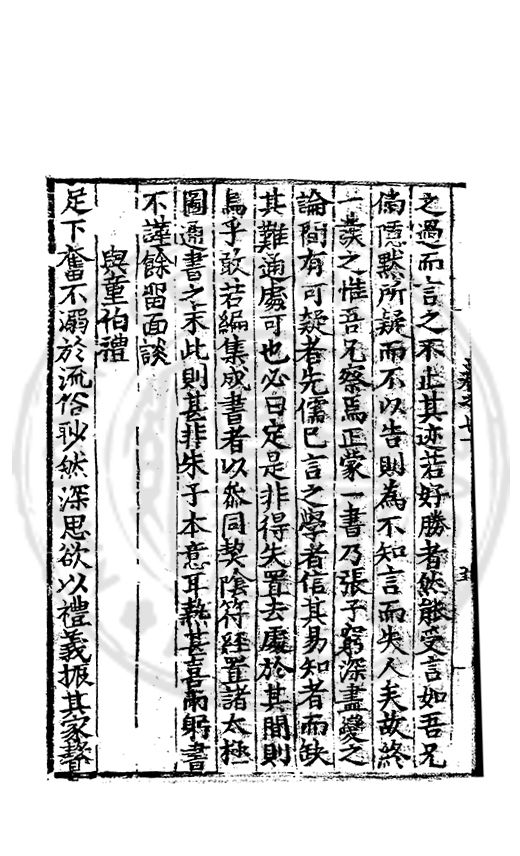 之過而言之不止其迹若好勝者然能受言如吾兄
倘隱默所疑而不以告則為不知言而失人矣故終
一誒之惟吾兄察焉正蒙一書乃張子窮深盡變之
論間有可疑者先儒已言之學者信其易知者而缺
其難通處可也必曰定是非得失置去處於其間則
烏乎敢若編集成書者以叅同契陰符經置諸太極
圖通書之末此則甚非朱子本意耳熱甚喜雨躬書
不謹餘留面談
與童伯禮
足下奮不溺於流俗耿然深思欲以禮義振其家